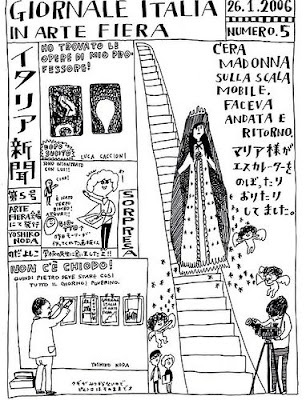 GIORNALE ITALIA
IN ARTE FIERA
26.1.2006
NUMERO.5
イタリア新聞
第5号
ARTE
FIERA会場
にて発行
YOSHIKO
NODA
のだよしこ
HO TROVATO LE
OPERE DI MIO PRO-
FESSORE!
LUCA CACCIONI
SORPRESA
C'ERA
MADONNA
SULLA SCALA
MOBILE.
FACEVA
ANDATA E
RITORNO.
マリア様が
エスカレーターを
のぼったり
おりたり
してました。
NON C'È CHIODO!
QUINDI PIETRO DEVE STARE COSÌ
TUTTO IL GIORNO! POVERINO.
YOSHIKO NODA